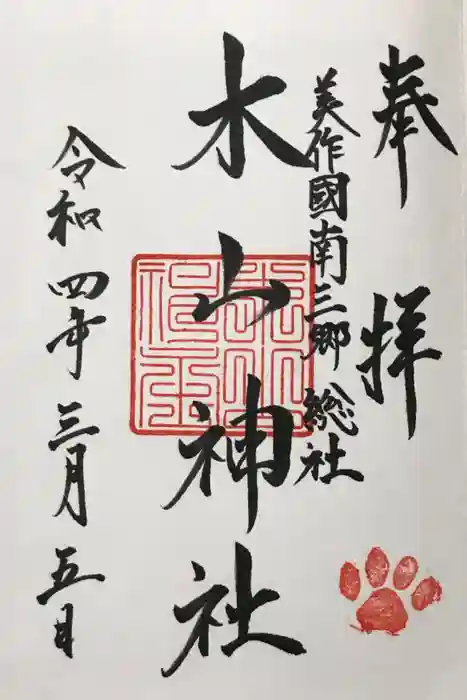 奉拝
美作國南三郷 総社
木山神社
令和四年三月五日